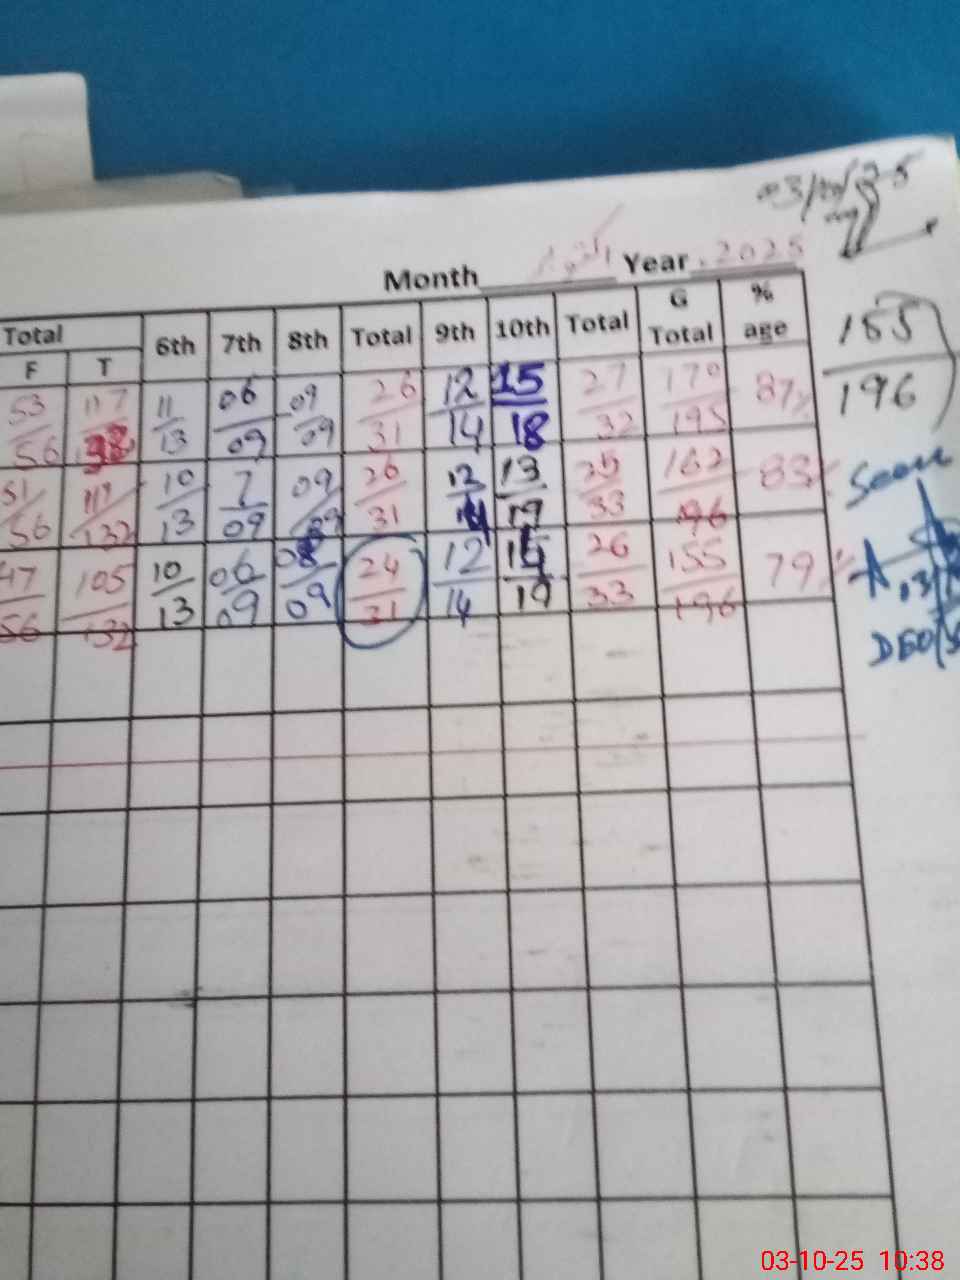 03/10/25
Month اکتوبر Year 2025
Total 6th 7th 8th Total 9th 10th Total G Total % age
F T
53/56 117/132 11/13 06/09 09/09 26/31 12/14 15/18 27/32 170/195 87%
155/196
51/56 111/132 10/13 7/09 09/09 26/31 12/14 13/19 25/33 162/196 83%
Seen
47/56 105/132 10/13 06/09 08/09 24/31 12/14 14/19 26/33 155/196 79%
03-10-25 10:38